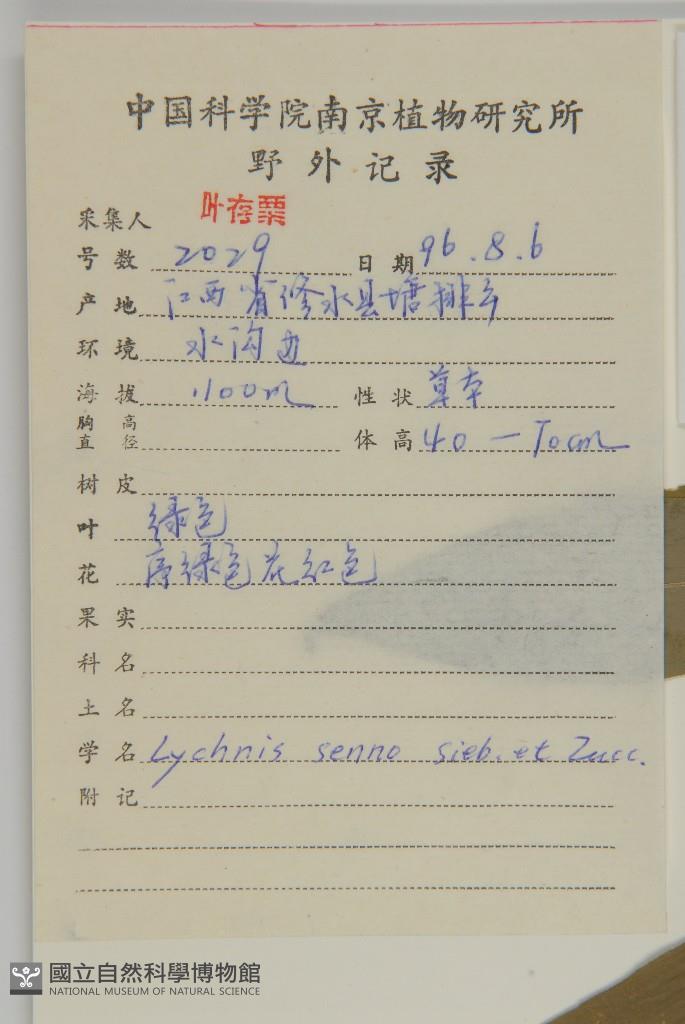 中国科学院南京植物研究所
野外记录
采集人 叶存粟
号数 2029 日期 96.8.6
产地 江西省修水县塘排乡
环境 水沟边
海拔 1100m 性状 草本
胸高直径 体高 40—70cm
树皮
叶 绿色
花 序绿色花红色
果实
科名
土名
学名 Lychnis senno Sieb. et Zucc.
附记
國立自然科學博物館
NATIONAL MUSEUM OF NATURAL SCIENCE